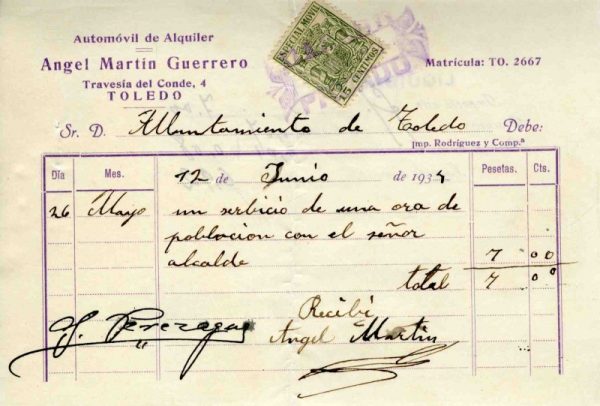 Automóvil de Alquiler
de
Angel Martín Guerrero
Travesía del Conde, 4
TOLEDO
ESPECIAL MOVIL
15 CENTIMOS
PAGADO
Matrícula: TO. 2667
Sr. D. Alluntamiento de Toledo Debe:
Imp. Rodríguez y Comp.ª
Día Mes. 12 de Junio de 1934 Pesetas. Cts.
26 Mayo un serbicio de una ora de
poblacion con el señor
alcalde 7 00
total 7 00
Recibí
Angel Martin